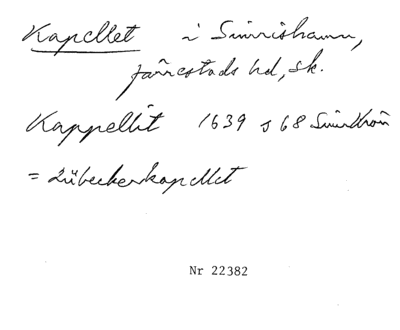 Kapellet i Simrishamn,
Järrestads hd, Sk.
Kappellit 1639 s 68 SimrKrön
= Lübeckerkapellet
Nr 22382